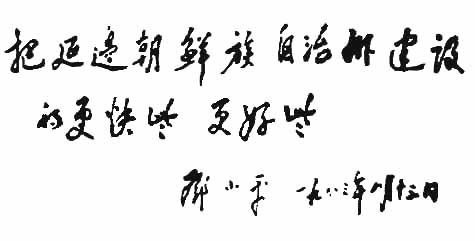 把延边朝鲜族自治州建设
的更快些 更好些
邓小平 一九八三年八月十三日